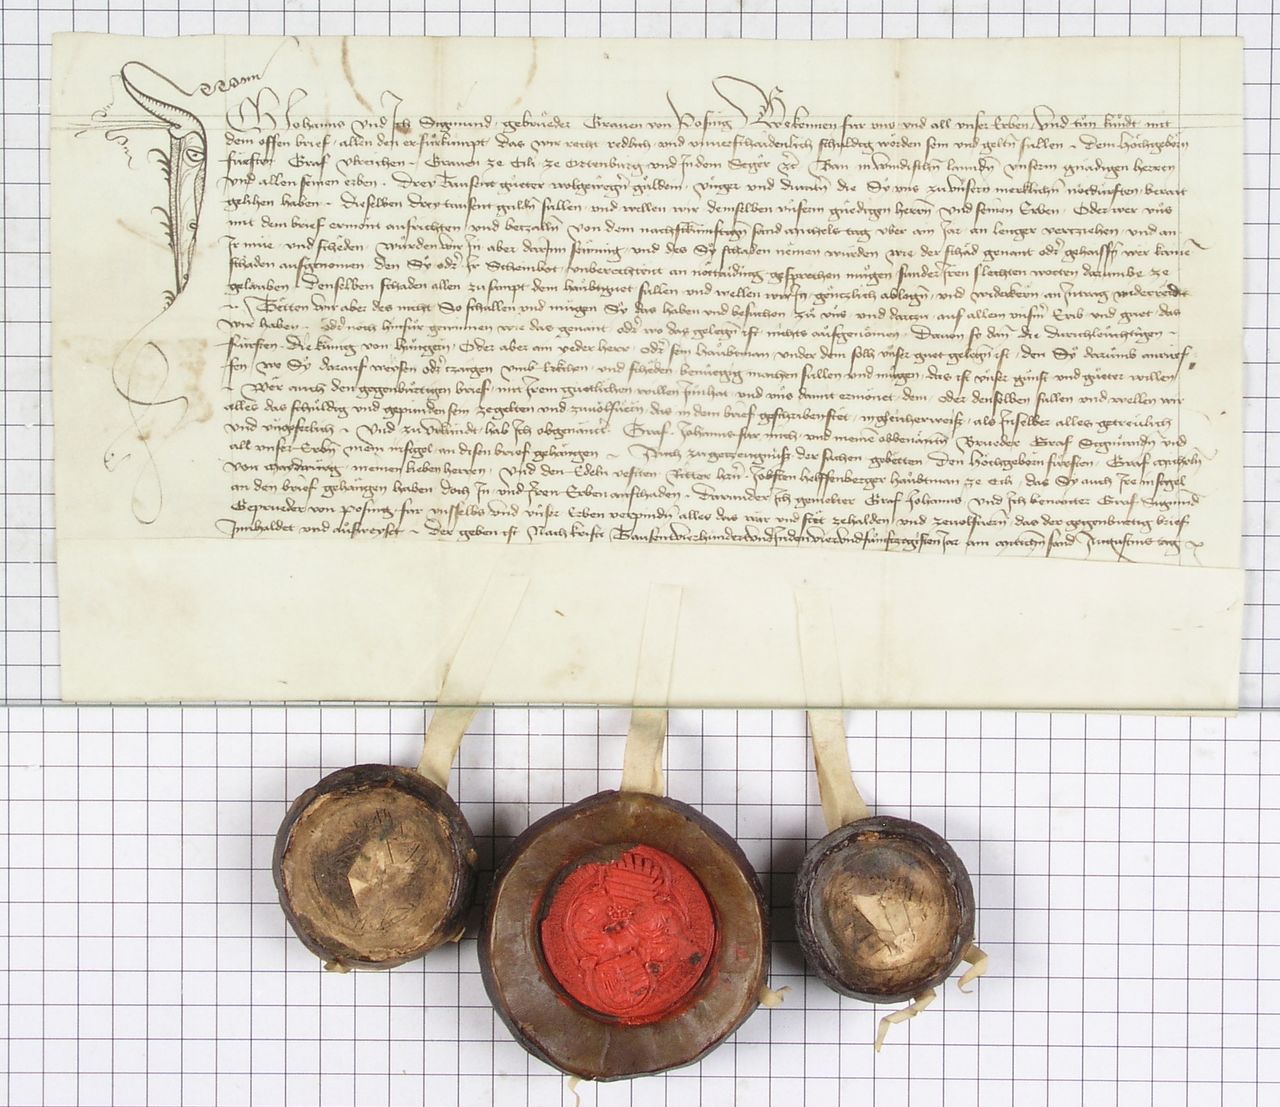 Johanns Und Ich Sigmund gebrueder Grauen von Posing Bekennen fur uns und all unser Erben Und tun kundt mit
dem offen brief allen den er furkumpt das wir recht redlich und unuerschaidenlich schuldig worden sein und geltn sullen Dem Hochgeborn
fursten Graf Ulreichen Grauen ze Cili ze Ortenburg und Indem Seger etc Ban in Windischn lannden unserm gnadigen herren
und allen seinen erben Drey Tausent gueter wolgewegn guldein Unger und Ducatn die Sy uns zu unsern merklichn notdurften berait
gelihen haben Dieselben drey tausent guldn sullen und wellen wir demselben unserm gnedigen herrn Und seinen Erben Oder wer uns
mit dem brief ermont ausrichten und betzalln von dem nachstkunftign sand Michels tag uber ain Jar an lenger vertziehen und an
Ir mue und scheden wurden wir In aber darInn seumig und des Sy schaden nemen wurden wie der schad genant oder gehaissn wer kainen
schaden ausgenomen den Sy oder Ir Scheinbot unberechtent an nottaiding gesprechen mugen sunder Iren slechten worten darumbe ze
gelauben Denselben schaden allen zusampt dem haubtguet sullen und wellen wir In gentzlich ablegn und widerkern an Intrag widerredt
Tetten wir aber des nicht So schullen und mugen Sy das haben und besuchen zu uns und darzu auf allem unserm Erb und guet das
wir haben oder noch hinfur gewinnen wie das genant oder wo das gelegn ist nichts ausgenomen Dauon so dann die durchleuchtigen
fursten die kunig von hungern Oder aber ain yeder herr oder sein haubtman under dem solh unser guet gelegn ist den Sy darumb anruef
fen wo Sy darauf weisen oder tzaigen umb Erkchen und scheden benuegig machen sullen und mugen das ist unser gunst und gueter willen
Wer auch den gegenburtigen brief mit Irem guetlichen willen Innhat und uns damit ermonet dem oder denselben sullen und wellen wir
alles das schuldig und gepunden sein zegelten und zuuolfuern das in dem brief geschriben stet in gleicherweiss als In selber alles getreulich
und ungeuerlich Und zu Urkundt hab Ich obgenanter Graf Johanns fur mich und meinen obbenantn Brueder Graf Sigmundn und
all unser Erbn mein insigel an disen brief gehangen Auch zu getzeugnuss der sachen gebetten den Hochgeborn fursten Graf Micheln
von Maidburg meinen lieben herren Und den Edeln vesten Ritter hern Jobsten helffenberger haubtman ze Cili das Sy auch Ire insigel
an den brief gehangen haben doch In und Iren Erben an schaden Darunder Ich gemelter Graf Johanns und Ich benanter Graf Sigmund
Geprueder von Posing fur unsselbs und unser Erben verpinden alles das war und stet zehalden und zeuolfuern das der gegenburtig brief
Innhaldet und ausweyset Der geben ist Nach kristi Tausent vierhundert und Inden vier und funftzegisten Jar am Sand Augustins tag